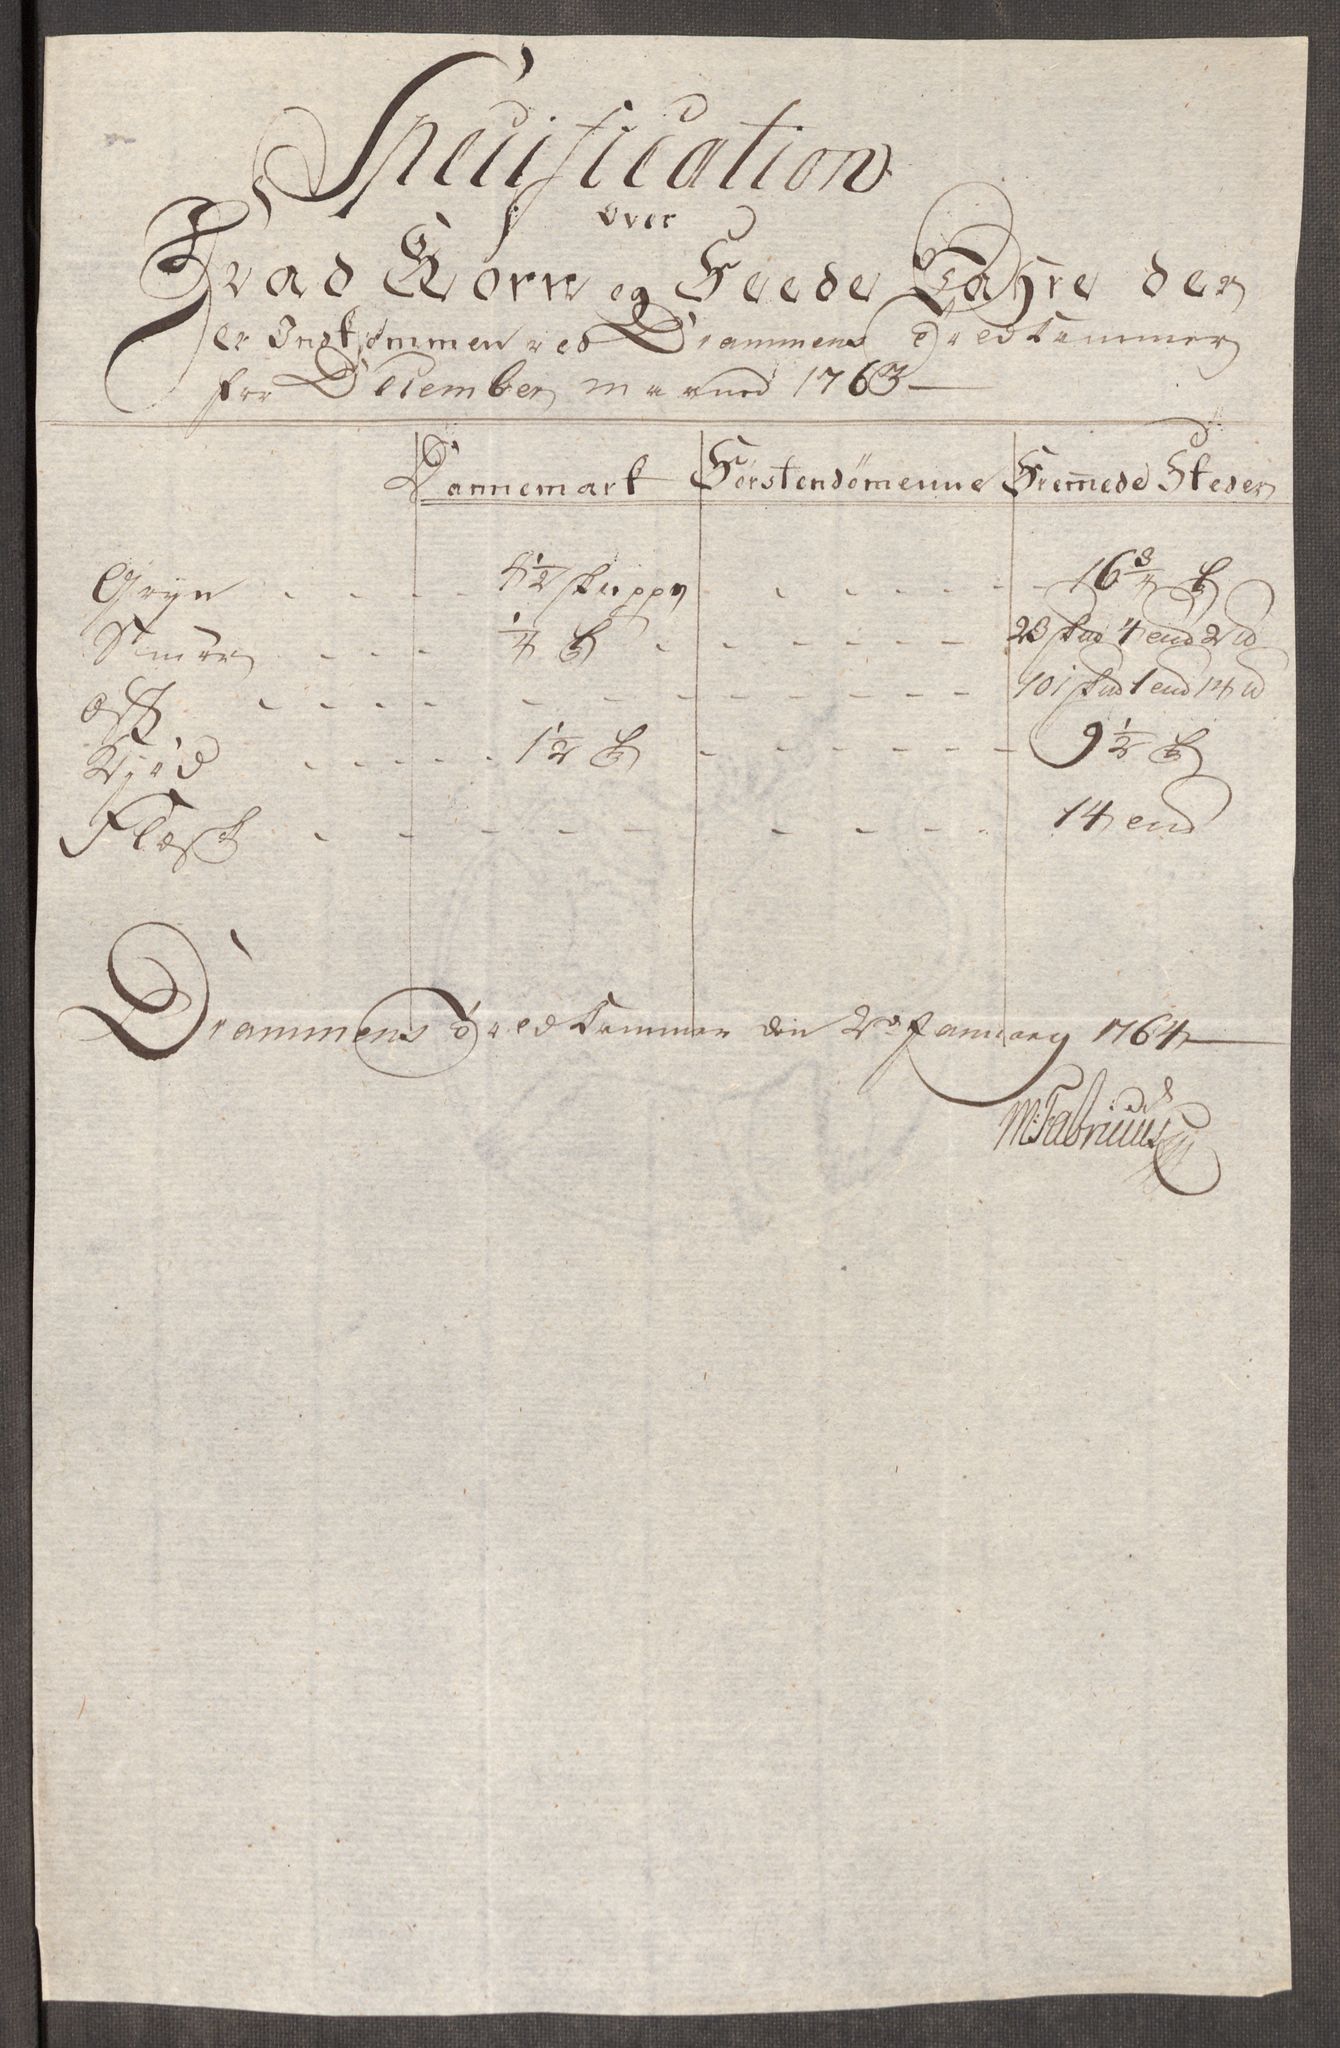 Specification
over
Hvad Korn og Feede Wahre der
er Indkommen ved Drammens Told Cammer
for December Maaned 1763
Dannemark Förstendömenne Fremmede Steder
Gryn - - - 4 1/2 skiepper - - - - - 16 3/4 tr
Smör - - - 1/4 tr - - - - - 23 skud 4 end 2 lb
Ost - - - - - - - - - - - 101 skud 1 end 14 lb
Kjöd - - - - - 1 1/2 tr - - - - - 9 1/2 tr
Flesk - - - - - - - - - 14 end
Drammens Told Cammer den 2d January 1764
M: Fabricius